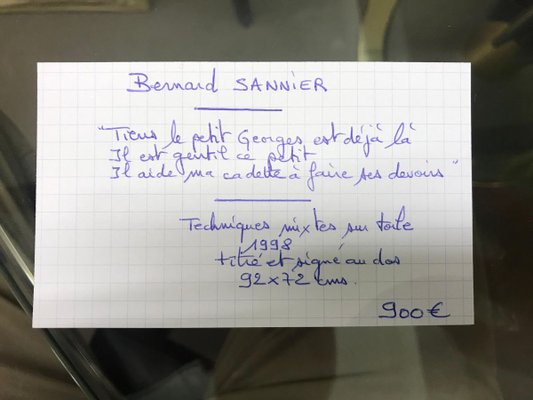 Bernard SANNIER
"Tiens le petit Georges est déjà là
Il est gentil ce petit
Il aide ma cadette à faire ses devoirs"
Techniques mixtes sur toile
1998
titré et signé au dos
92x72 cms.
900€